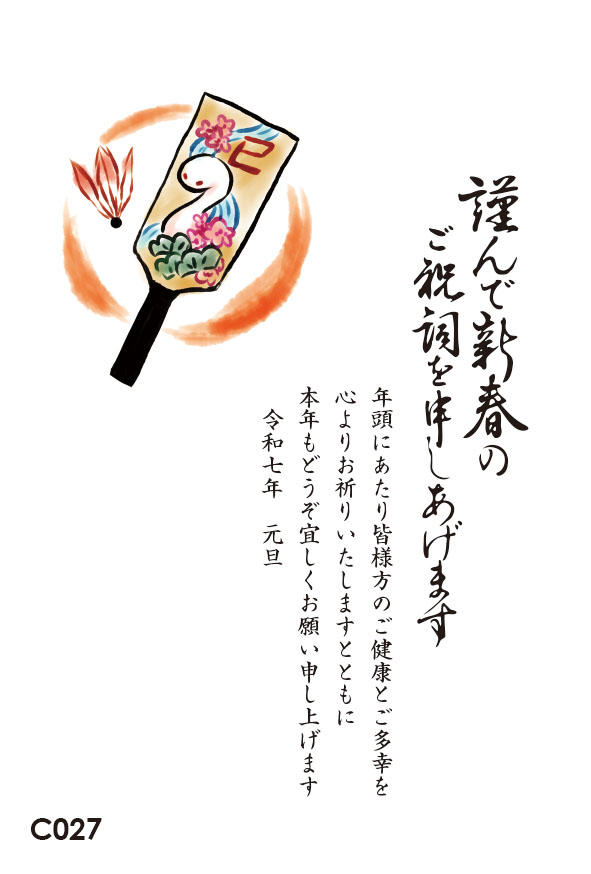 謹んで新春の
ご祝詞を申しあげます
年頭にあたり皆様方のご健康とご多幸を
心よりお祈りいたしますとともに
本年もどうぞ宜しくお願い申し上げます
令和七年　元旦
巳
C027